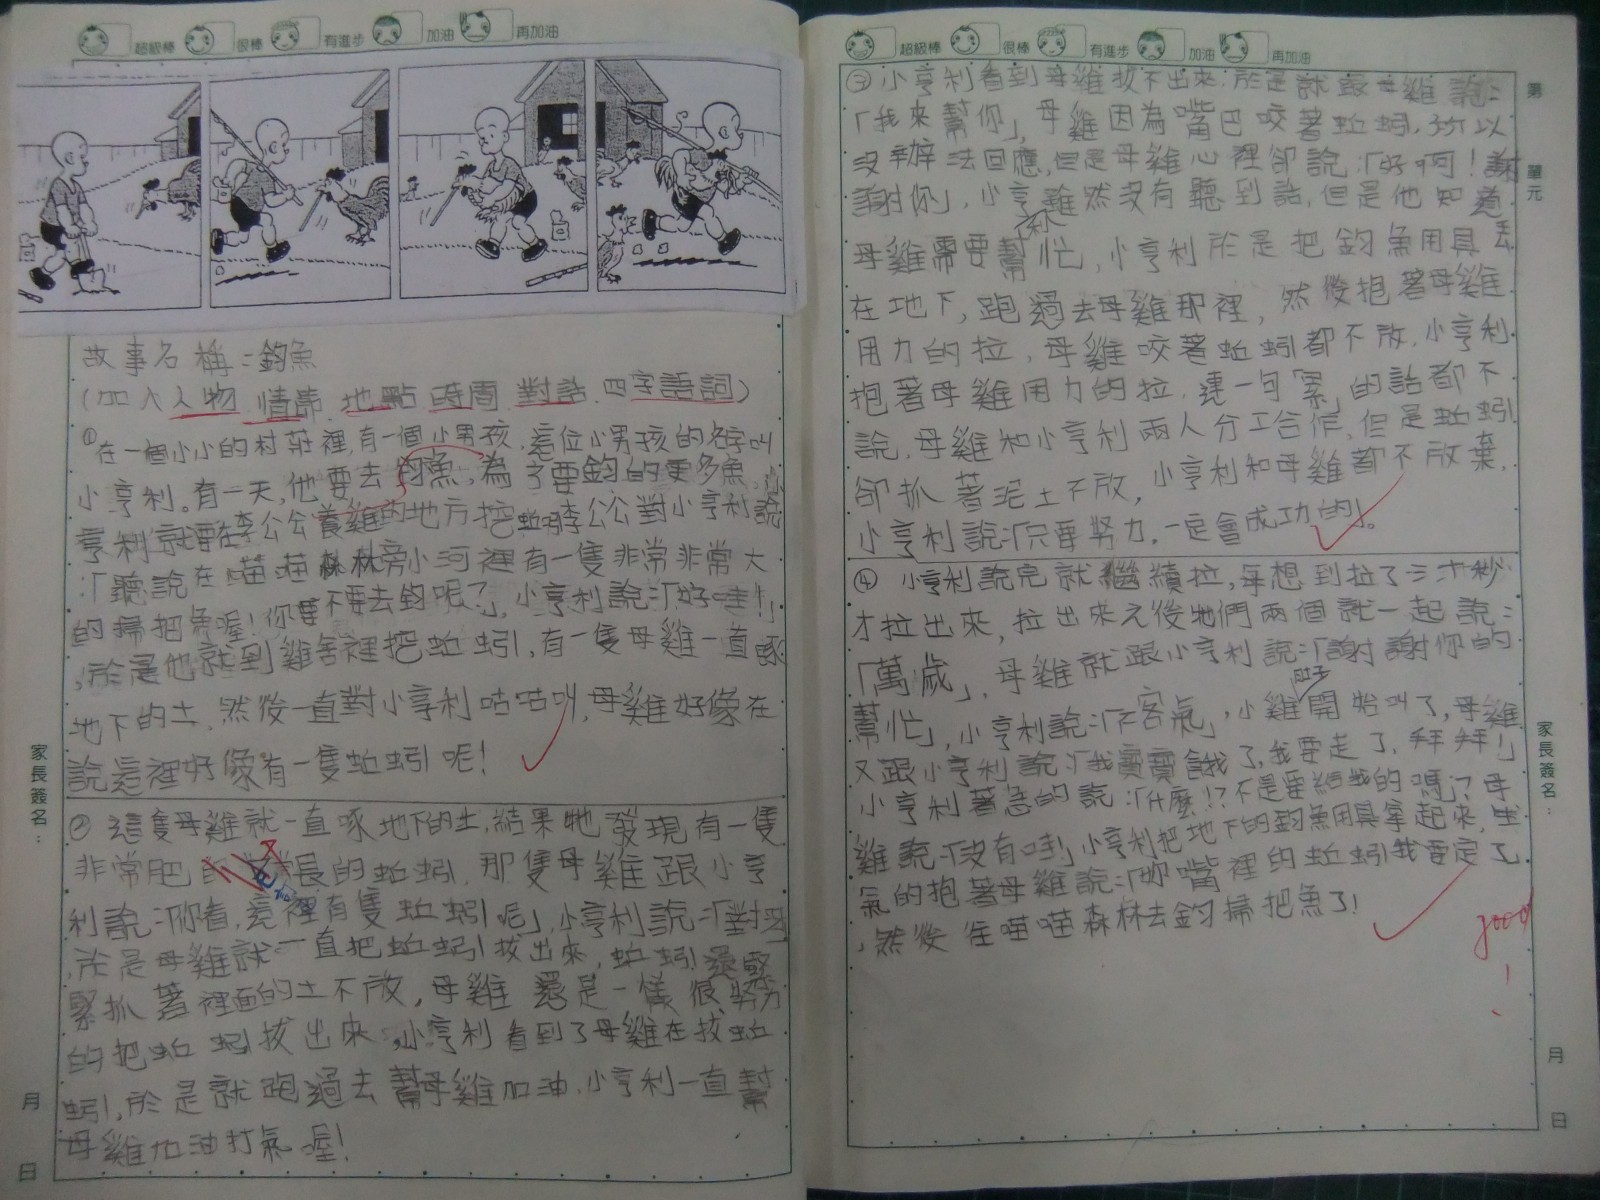 超級棒 很棒 有進步 加油 再加油
故事名稱：釣魚
(加入人物、情節、地點、時間、對話、四字語詞)
①在一個小小的村莊裡，有一個小男孩，這位小男孩的名字叫
小亨利。有一天，他要去釣魚，為了要釣的更多魚，小
亨利就在李公公養雞的地方挖蚯蚓李公公對小亨利說
：「聽說在喵喵森林旁小河裡有一隻非常非常大
的掃把魚喔！你要不要去釣呢？」，小亨利說：「好哇！」
，於是他就到雞舍裡挖蚯蚓，有一隻母雞一直啄
地下的土，然後一直對小亨利咕咕叫，母雞好像在
說這裡好像有一隻蚯蚓呢！
②這隻母雞就一直啄地下的土，結果牠發現有一隻
非常肥長的蚯蚓，那隻母雞跟小亨
利說：「你看，這裡有隻蚯蚓呢」，小亨利說：「對呀」
，於是母雞就一直把蚯蚓拔出來，蚯蚓還緊
緊抓著裡面的土不放，母雞還是一樣很努力
的把蚯蚓拔出來，小亨利看到了母雞在拔蚯
蚓，於是就跑過去幫母雞加油，小亨利一直幫
母雞加油打氣喔！
家長簽名：
月
日
超級棒 很棒 有進步 加油 再加油
第
單元
③小亨利看到母雞拔不出來，於是就跟母雞說：
「我來幫你」，母雞因為嘴巴咬著蚯蚓，所以
沒辦法回應，但是母雞心裡卻說：「好啊！謝
謝你」，小亨利雖然沒有聽到話，但是他知道
母雞需要幫忙，小亨利於是把釣魚用具丟
在地下，跑過去母雞那裡，然後抱著母雞
用力的拉，母雞咬著蚯蚓都不放，小亨利
抱著母雞用力的拉，連一句「累」的話都不
說，母雞和小亨利兩人分工合作，但是蚯蚓
卻抓著泥土不放，小亨利和母雞都不放棄，
小亨利說：「只要努力，一定會成功的」。
④小亨利說完就繼續拉，每想到拉了三十秒
才拉出來，拉出來之後牠們兩個就一起說：
「萬歲」，母雞就跟小亨利說：「謝謝你的
幫忙」，小亨利說：「不客氣」，小雞開始叫了，母雞
又跟小亨利說：「我寶寶餓了，我要走了，拜拜！」
小亨利著急的說：「什麼！？不是要給我的嗎？母
雞說：「沒有哇」小亨利把地下的釣魚用具拿起來，生
氣的抱著母雞說：「妳嘴裡的蚯蚓我要定了
，然後往喵喵森林去釣掃把魚了！
good!
家長簽名：
月
日